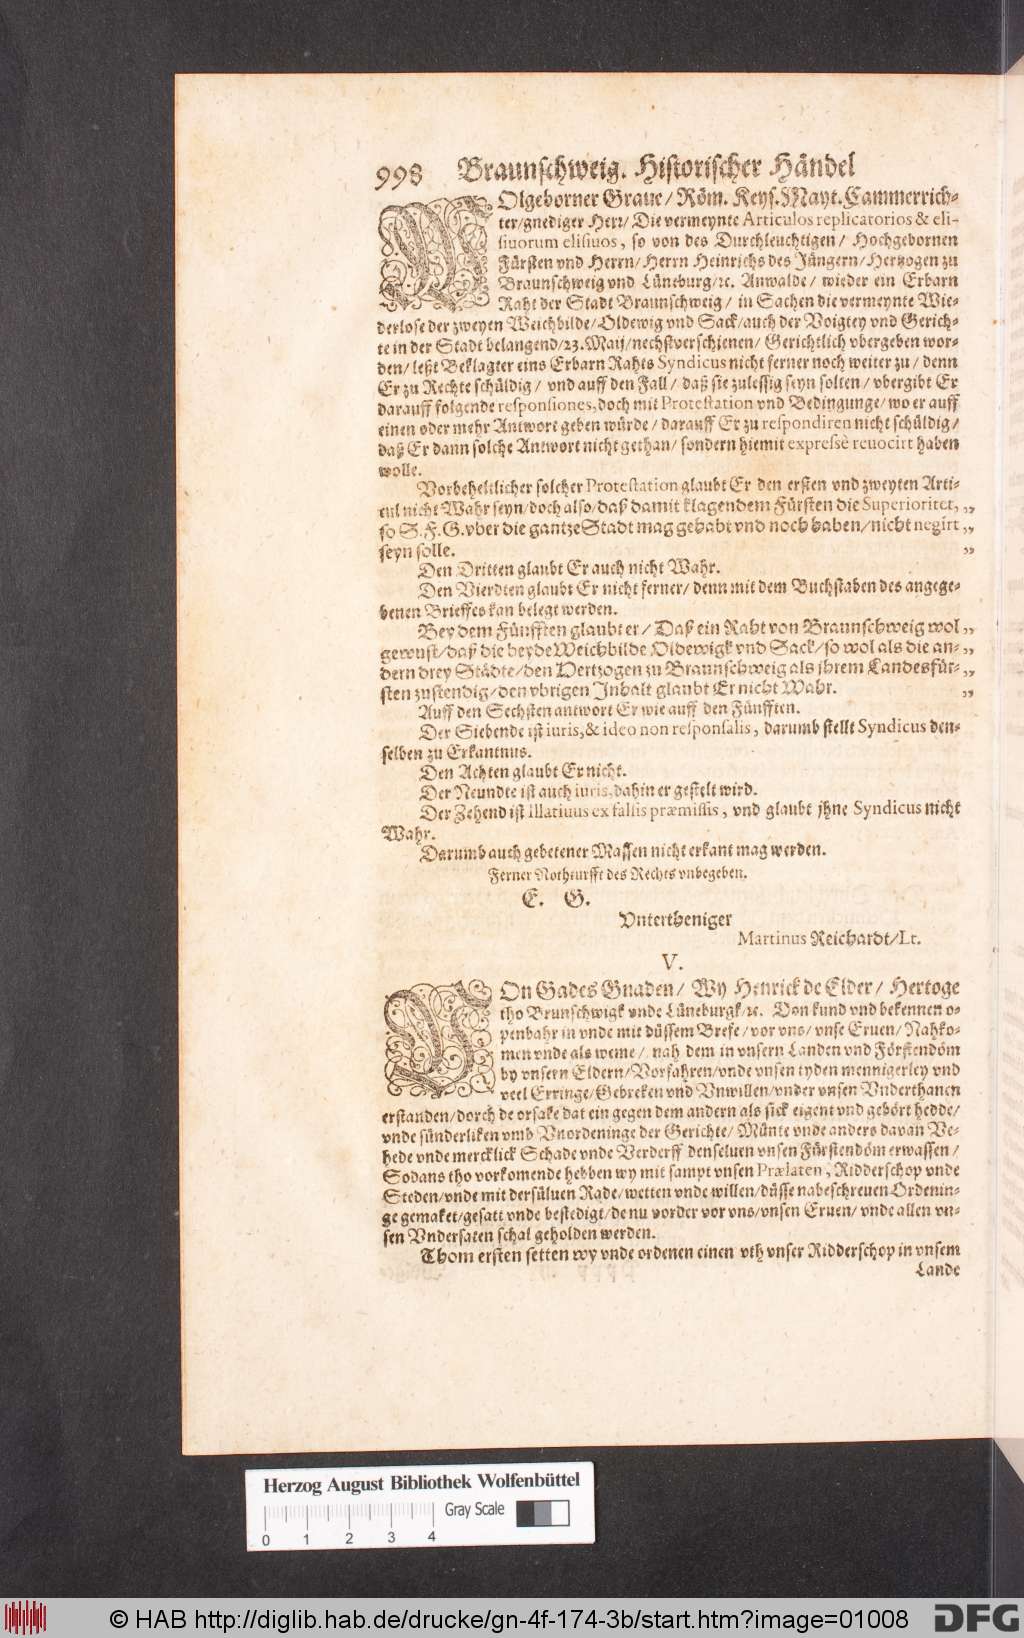 998 Braunschweig. Historischer Händel
WOlgeborner Graue / Röm. Keys. Mayt. Cammerrich-
ter/gnediger Herr/ Die vermeynte Articulos replicatorios & eli-
siuorum elisiuos, so von des Durchleuchtigen / Hochgebornen
Fürsten vnd Herrn/ Herrn Heinrichs des Jüngern/ Hertzogen zu
Braunschweig vnd Lüneburg/ꝛc. Anwalde / wieder ein Erbarn
Raht der Stadt Braunschweig / in Sachen die vermeynte Wie-
derlose der zweyen Weichbilde/Oldewig vnd Sack/auch der Voigtey vnd Gerich-
te in der Stadt belangend/23. Maij/nechstverschienen/ Gerichtlich vbergeben wor-
den/ leßt Beklagter eins Erbarn Rahts Syndicus nicht ferner noch weiter zu / denn
Er zu Rechte schüldig / vnd auff den Fall / daß sie zulessig seyn solten / vbergibt Er
darauff folgende responsiones, doch mit Protestation vnd Bedingunge/ wo er auff
einen oder mehr Antwort geben würde / darauff Er zu respondiren nicht schüldig /
daß Er dann solche Antwort nicht gethan / sondern hiemit expressè reuocirt haben
wolle.
Vorbeheltlicher solcher Protestation glaubt Er den ersten vnd zweyten Arti-
cul nicht Wahr seyn/doch also/daß damit klagendem Fürsten die Superioritet, „
so S. F. G. vber die gantze Stadt mag gehabt vnd noch haben/nicht negirt „
seyn solle. „
Den Dritten glaubt Er auch nicht Wahr.
Den Vierdten glaubt Er nicht ferner/ denn mit dem Buchstaben des angege-
benen Brieffes kan belegt werden.
Bey dem Fünfften glaubt er / Daß ein Raht von Braunschweig wol „
gewust/daß die beyde Weichbilde Oldewigk vnd Sack/so wol als die an- „
dern drey Städte/den Hertzogen zu Braunschweig als jhrem Landesfür- „
sten zustendig/den vbrigen Inhalt glaubt Er nicht Wahr. „
Auff den Sechsten antwort Er wie auff den Fünfften.
Der Siebende ist iuris, & ideo non responsalis, darumb stellt Syndicus den-
selben zu Erkantnus.
Den Achten glaubt Er nicht.
Der Neundte ist auch iuris, dahin er gestelt wird.
Der Zehend ist Illatiuus ex falsis præmissis, vnd glaubt jhne Syndicus nicht
Wahr.
Darumb auch gebetener Massen nicht erkant mag werden.
Ferner Nothturfft des Rechts vnbegeben.
E. G.
Vntertheniger
Martinus Reichardt/Lt.
V.
VOn Gades Gnaden / Wy Henrick de Elder / Hertoge
tho Brunschwigk vnde Lüneburgk/ꝛc. Don kund vnd bekennen o-
penbahr in vnde mit düssem Brefe / vor vns / vnse Eruen/ Nahko-
men vnde als weme / nah dem in vnsern Landen vnd Förstendöm
by vnsern Eldern/Vorfahren/vnde vnsen tyden mennigerley vnd
veel Erringe/Gebreken vnd Vnwillen/vnder vnsen Vnderthanen
erstanden/dorch de orsake dat ein gegen dem andern als sick eigent vnd gebört hedde/
vnde sünderliken vmb Vnordeninge der Gerichte/ Münte vnde anders davan Ve-
hede vnde mercklick Schade vnde Verderff denseluen vnsen Fürstendöm erwassen /
Sodans tho vorkomende hebben wy mit sampt vnsen Prælaten, Ridderschop vnde
Steden/vnde mit dersüluen Rade/ wetten vnde willen/düsse nabeschreuen Ordenin-
ge gemaket/gesatt vnde bestedigt/de nu vorder vor vns/vnsen Eruen/ vnde allen vn-
sen Vndersaten schal geholden werden.
Thom ersten setten wy vnde ordenen einen vth vnser Ridderschop in vnsem
Lande
Herzog August Bibliothek Wolfenbüttel
Gray Scale
0 1 2 3 4
© HAB http://diglib.hab.de/drucke/gn-4f-174-3b/start.htm?image=01008 DFG